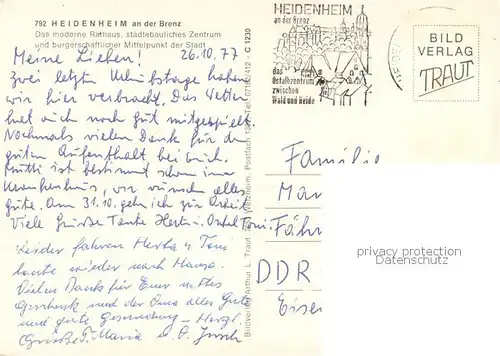 792 HEIDENHEIM an der Brenz
Das moderne Rathaus, städtebauliches Zentrum
und bürgerschaftlicher Mittelpunkt der Stadt
Meine Lieben! 26.10.77
zwei letzten Urlaubstage haben
wir hier verbracht. Das Wetter
hat auch noch gut mitgespielt.
Nochmals vielen Dank für den
guten Aufenthalt bei Euch.
Mutti ist bestimmt schon im
Krankenhaus, wir wünschen alles
gute. Am 31.10. geh ich zur Arbeit
Viele Grüße Tante Herta u. Onkel Toni.
Leider fahren Herta u Toni
heute wieder nach Hause.
Vielen Dank für Euer nettes
Geschenk und der Oma alles Gute
und gute Genesung – Herzl.
Grüße T. Maria u. O.
Bildverlag Arthur L. Traut Welzheim, Postfach 12 Tel.
C 1230
HEIDENHEIM
an der Brenz
das
Ostalbzentrum
zwischen
Wald und Heide
BILD
VERLAG
TRAUT
Familie
DDR
privacy protection
Datenschutz